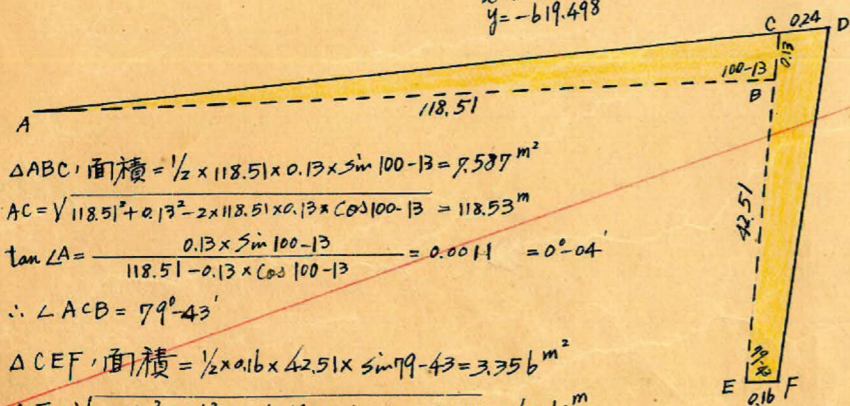 y=-619.498
C 0.24 D
0.13
100-13
B
A
118.51
42.51
E F
0.16
△ABC,面積=1/2×118.51×0.13×Sin 100-13=7.587m²
AC=√118.51²+0.13²-2×118.51×0.13×COS100-13 =118.53m
tan∠A= 0.13×Sin 100-13 / 118.51-0.13×Cos 100-13 =0.0011 =0°-04'
∴∠ACB=79°-43'
△CEF,面積=1/2×0.16×42.51×sin79-43=3.356m²